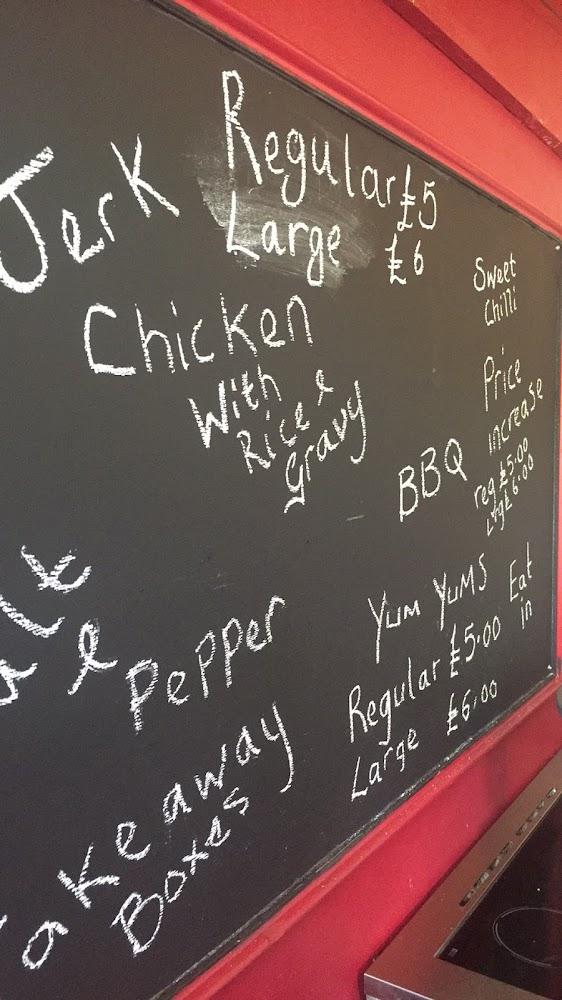 Jerk
Regular £5
Large £6
Chicken
With
Rice &
Gravy
Sweet
Chilli
Price
increase
reg £5.00
Lrg £6.00
BBQ
&
Pepper
Yum Yums
Eat
in
Regular £5.00
Large £6.00
Takeaway
Boxes